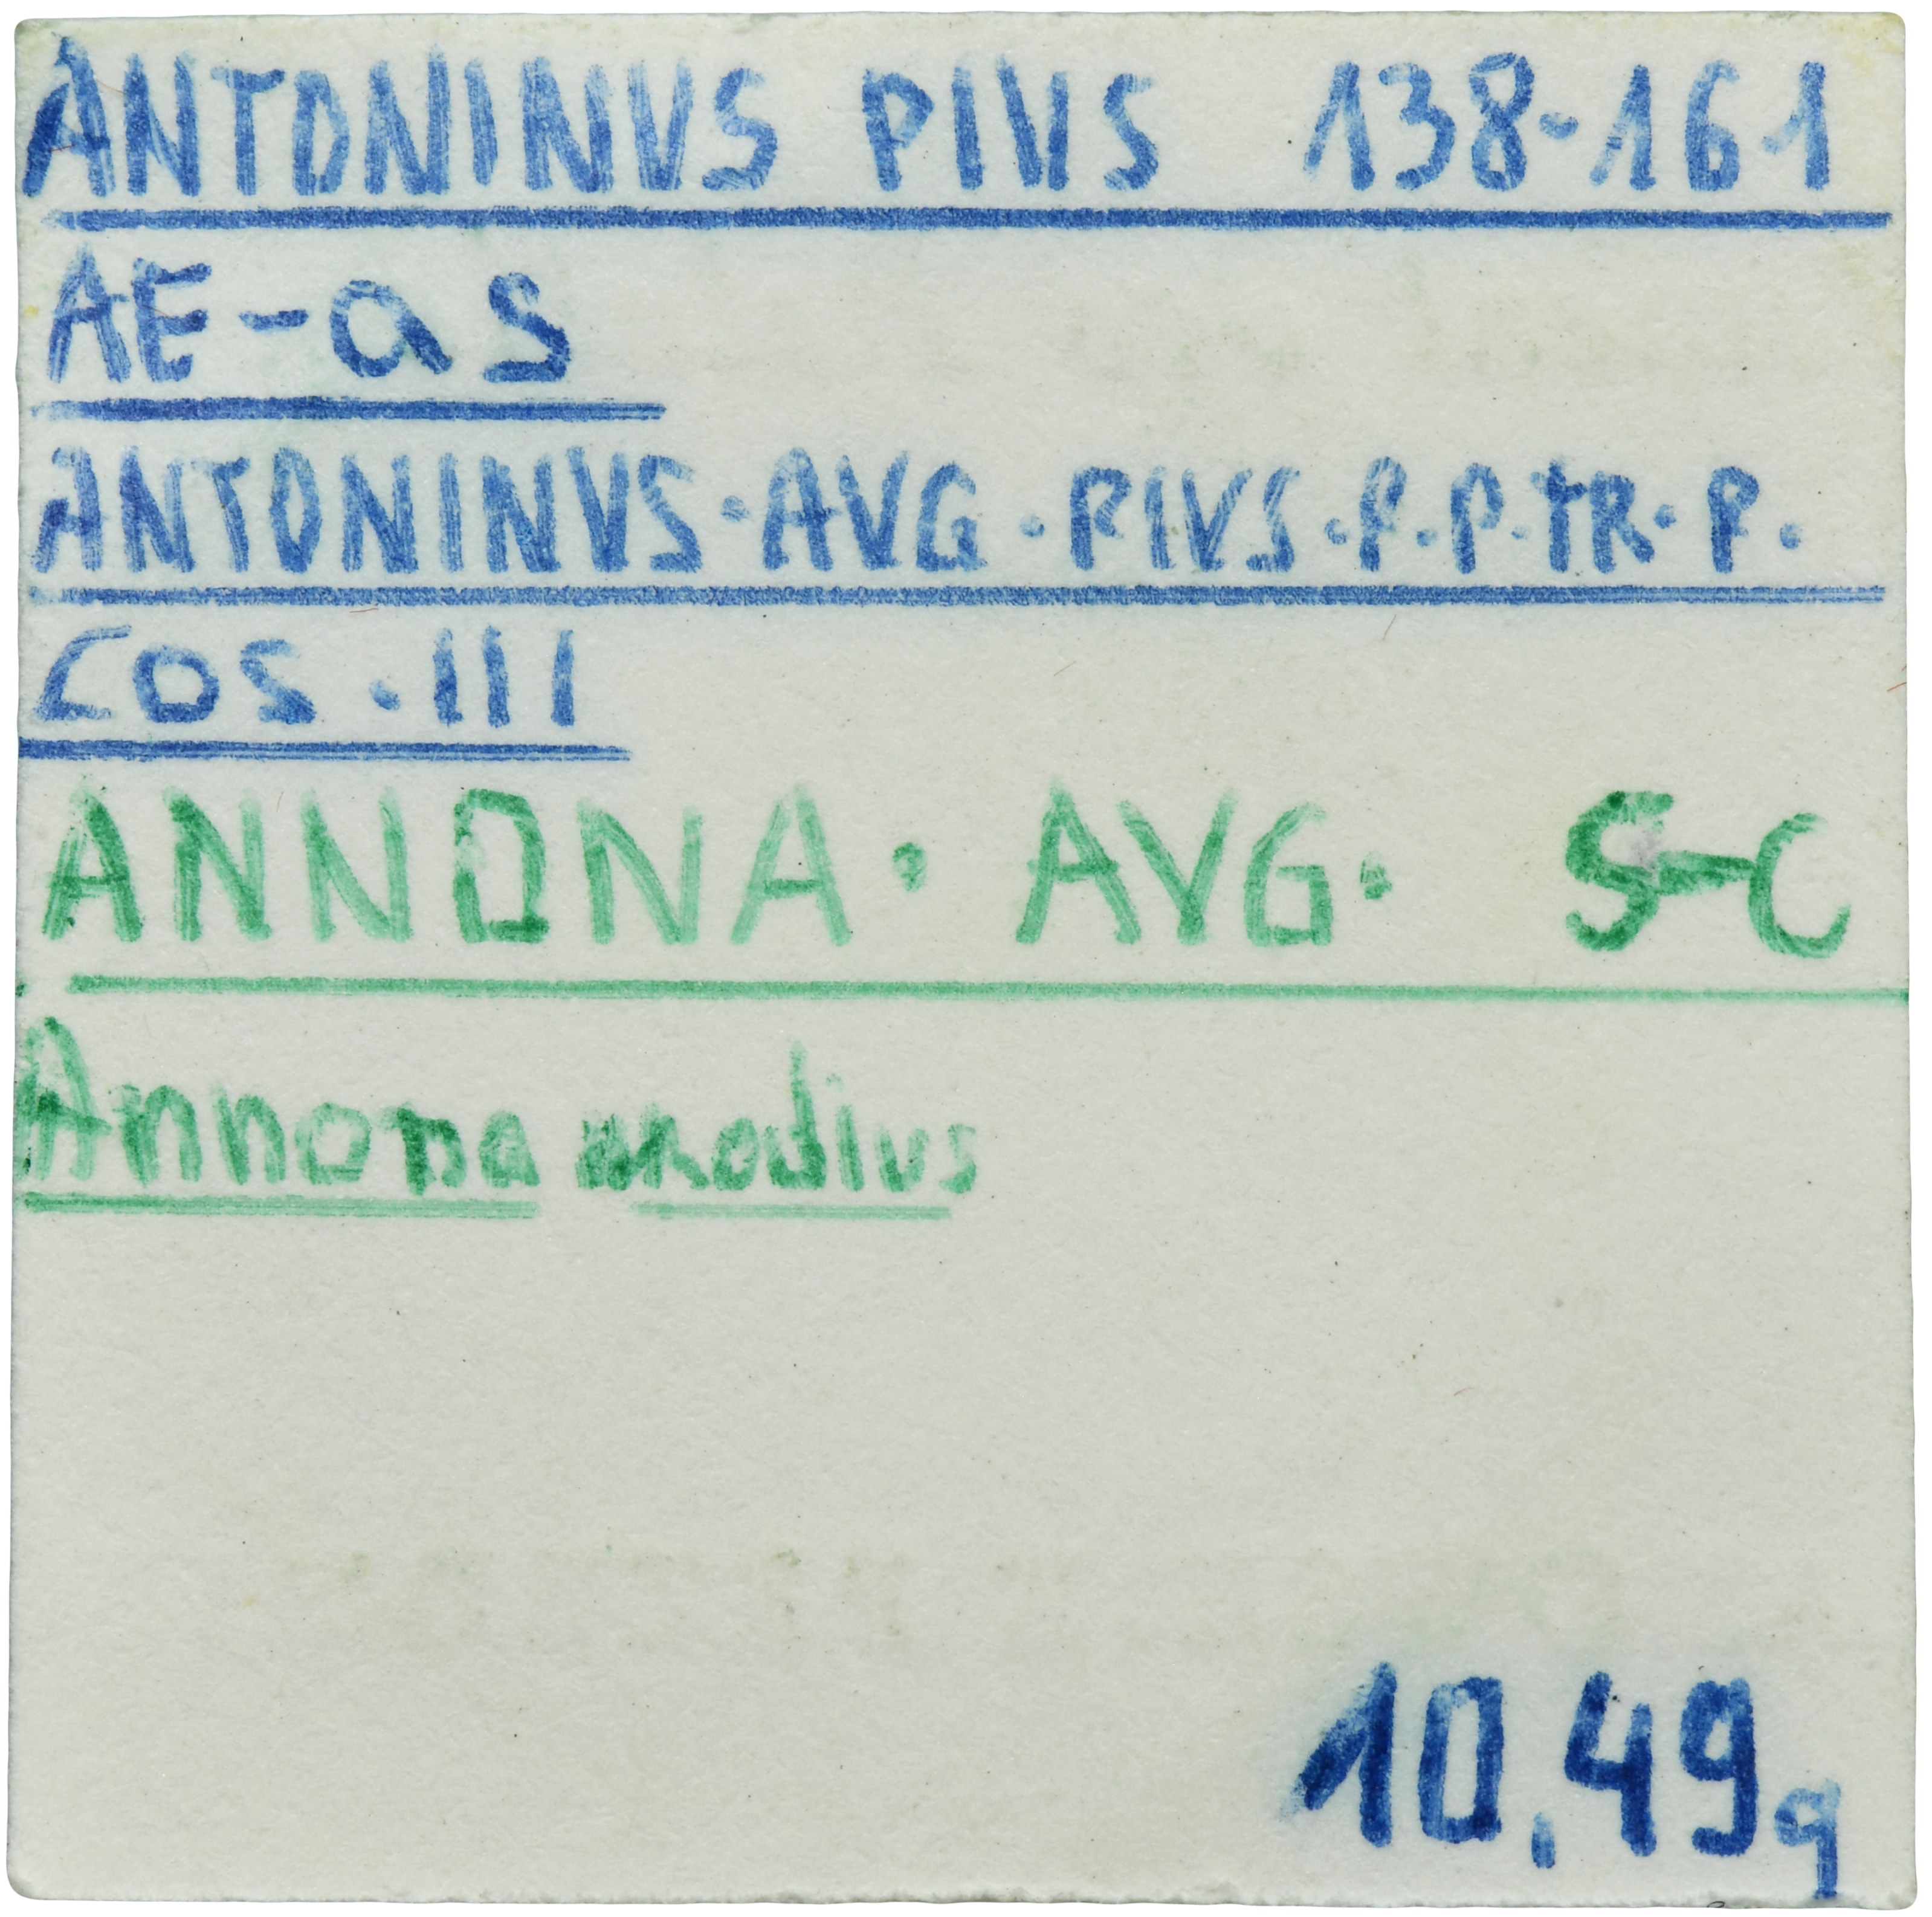 ANTONINVS PIVS 138-161
AE-as
ANTONINVS·AVG·PIVS·P·P·TR·P·
COS·III
ANNONA· AVG· S-C
Annona modius
10,49g